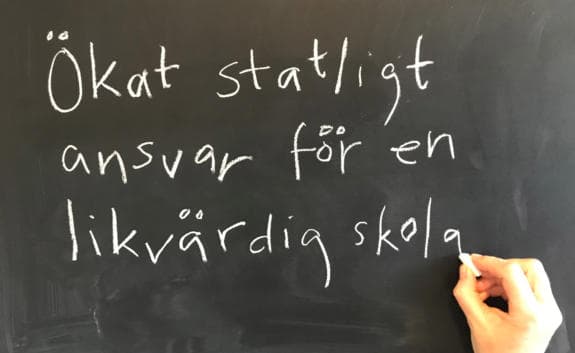 Ökat statligt
ansvar för en
likvärdig skola